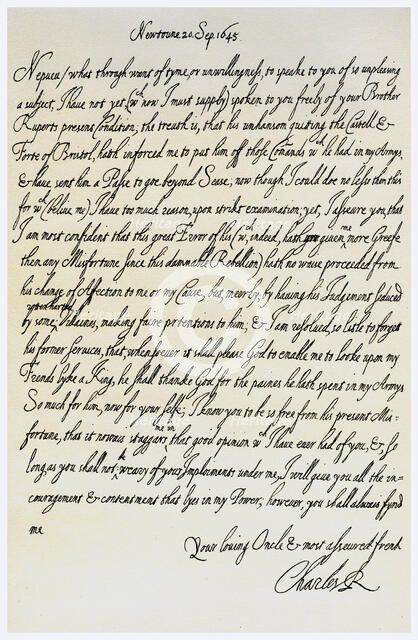 Newtoune 20. Sep. 1645.
Nepueu / what through want of tyme, or unwillingness, to speake to you of so unpleasing
a subject, I have not yet, (wch now I must supply) spoken to you freely of your Brother
Ruperts present Condition; the treuth is, that his unhansom quitting the Castell &
Forte of Bristol, hath inforced me to put him off those Comands wch he had in my Armys
& have sent him a Passe to goe beyond Seas; now though I could doe no lesse than this
for wch (beliue me) I have too much reason, upon strikt examination; yet, I asseure you, that
I am most confident that this great Error of his (wch, indeed, hath given me more Greefe
then any Misfortune since this damnable Rebellion) hath no waise proceeded from
his change of Affection to me or my Cause, but, meerly, by having his Judgement seduced
by some rotten harted Vilaines, making faire pretentions to him; & I am resolved so litle to forget
his former Services, that, whensoever it shall please God to enable me to looke upon my
Frends lyke a King, he shall thanke God for the paines he hath spent in my Armys
So much for him, now for your selfe; I know you to be so free from his present Mis-
fortune, that it nowais staggers me in that good opinion wch I have ever had of you, &, so
long as you shall not be weary of your Imploiments under me, I will give you all the in-
couragement & contentment that lyes in my Power; however, you shall alwais fynd
me
Your loving Oncle & most asseured frend
Charles R